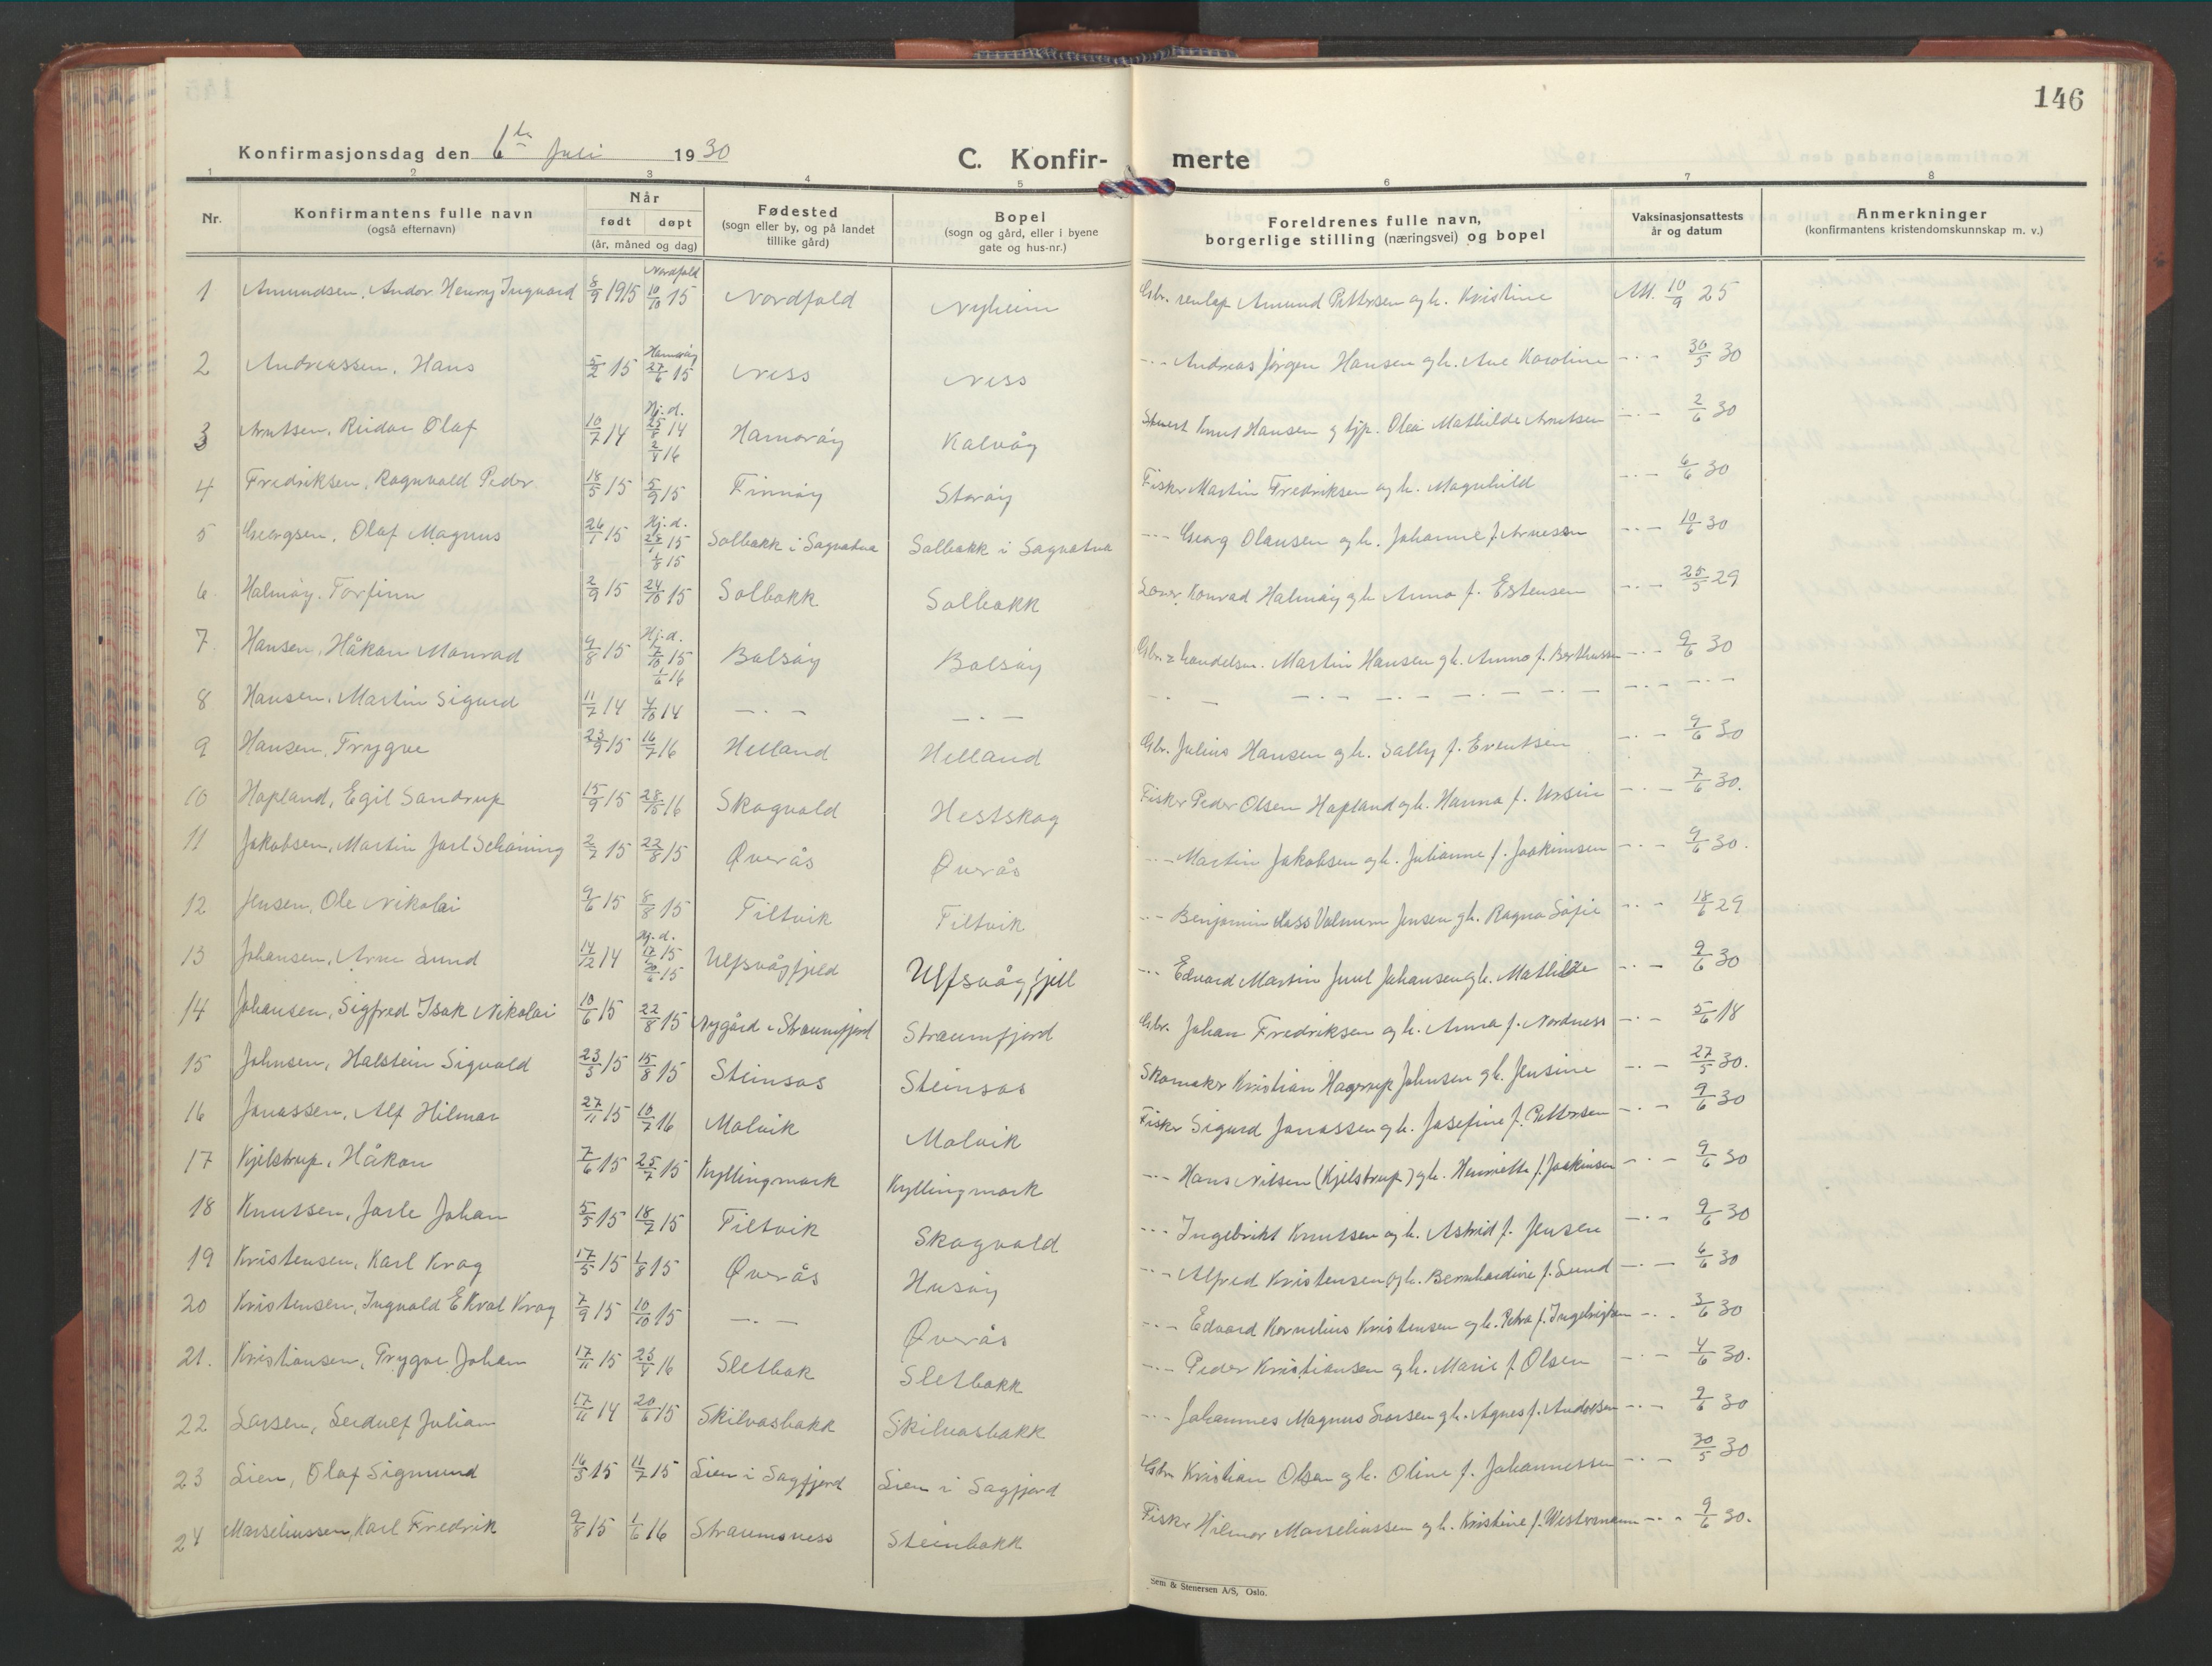 146
Konfirmasjonsdag den 6te Juli 1930
C. Konfir-merte
1 2 3 4 5 6 7 8
Nr.
Konfirmantens fulle navn
(også efternavn)
Når
født døpt
(år, måned og dag)
Fødested
(sogn eller by, og på landet
tillike gård)
Bopel
(sogn og gård, eller i byene
gate og hus-nr.)
Foreldrenes fulle navn,
borgerlige stilling (næringsvei) og bopel
Vaksinasjonsattests
år og datum
Anmerkninger
(konfirmantens kristendomskunnskap m. v.)
1 Amundsen, Andor Henry Ingvard 8/9 1915 Nordfold 10/10 15 Nordfold Nyheim Gbr. Amund Pettersen og h. Kristine Att. 10/9 25
2 Andreassen, Hans 5/2 15 Hamarøy 27/6 15 Ness Ness -.- Andreas Jørgen Hansen og h. Ane Karoline -.- 30/5 30
3 Arntsen, Reidar Olaf 10/7 14 Hj.d. 25/8 14 2/4 16 Hamarøy Kalvåg Knut Hansen og tjp. Olea Mathilde Arntsen -.- 2/6 30
4 Fredriksen, Ragnvald Peder 18/5 15 5/9 15 Finnøy Storøy Fisker Martin Fredriksen og h. Magnhild -.- 6/6 30
5 Georgsen, Olaf Magnus 26/1 15 Hj.d. 28/1 15 1/8 15 Solbakk i Sagvatna Solbakk i Sagvatna -.- Georg Olausen og h. Johanne f. Arnessen -.- 10/6 30
6 Halmøy, Torfinn 2/9 15 24/10 15 Solbakk Solbakk Lærer Konrad Halmøy og h. Anna f. Estensen -.- 25/5 29
7 Hansen, Håkon Monrad 9/8 15 Hj.d. 7/10 15 1/6 16 Balsøy Balsøy Gbr. & handelsm. Martin Hansen og h. Anna f. Berthussen -.- 9/6 30
8 Hansen, Martin Sigurd 11/7 14 4/10 14 -.- -.- -.- -.- -.- -.-
9 Hansen, Trygve 23/9 15 16/7 16 Helland Helland Gbr. Julius Hansen og h. Sally f. Eventsen -.- 9/6 30
10 Hopland, Egil Sandrup 15/9 15 28/10 16 Skogvold Hestskog Fisker Peder Olsen Hopland og h. Hanna f. Ursin -.- 7/6 30.
11 Jakobsen, Martin Jarl Schøning 2/7 15 22/8 15 Øverås Øverås -.- Martin Jakobsen og h. Julianne f. Joakimsen -.- 9/6 30.
12 Jensen, Ole Nikolai 9/6 15 8/8 15 Tiltvik Tiltvik -.- Benjamin Jensen og h. Ragna Sofie -.- 18/6 29
13 Johansen, Arne Lund 14/12 14 Hj.d. 17/1 15 20/6 15 Ulfsvågfjeld Ulfsvågfjell -.- Edvard Martin Juul Johansen og h. Mathilde -.- 9/6 30
14 Johansen, Sigfred Isak Nikolai 10/6 15 22/8 15 Nygård i Straumfjord Straumfjord Gbr. Johan Fredriksen og h. Anna f. Nordness -.- 5/6 18
15 Johnsen, Halstein Sigvald 23/5 15 15/8 15 Steinsos Steinsos Skomaker Kristian Hagerup Johnsen og h. Jensine -.- 27/5 30.
16 Jonassen, Alf Hilmar 27/11 15 10/7 16 Molvik Molvik Fisker Sigurd Jonassen og h. Josefine f. Pettersen -.- 9/6 30
17 Kjelstrup, Håkon 7/6 15 25/7 15 Kyllingmark Kyllingmark -.- Hans Nilsen (Kjelstrup) og h. Henriette f. Joakimsen -.- 9/6 30
18 Knutsen, Jarle Johan 5/5 15 18/7 15 Tiltvik Skogvold -.- Ingebrikt Knutsen og h. Astrid f. Jensen -.- 9/6 30
19 Kristensen, Karl Krog 17/5 15 1/8 15 Øverås Husøy -.- Alfred Kristensen og h. Bernhardine f. Lund -.- 6/6 30
20 Kristensen, Ingvald Ekrol Krog 7/9 15 10/10 15 -.- Øverås -.- Edvard Kornelius Kristensen og h. Petra f. Ingebrigtsen -.- 3/6 30
21. Kristiansen, Trygve Johan 17/11 15 23/4 16 Sletbak Sletbakk -.- Peder Kristiansen og h. Marie f. Olsen -.- 4/6 30.
22 Larsen, Leidulf Julian 17/11 14 20/6 15 Skilvasbakk Skilvasbakk -.- Johannes Magnus Larsen og h. Agnes f. Andersen -.- 9/6 30
23 Lien, Olaf Sigmund 16/5 15 11/7 15 Lien i Sagfjord Lien i Sagfjord Gbr Kristian Olsen og h. Oline f. Johannessen -.- 30/5 30
24 Marseliussen, Karl Fredrik 9/8 15 1/6 16 Straumsness Steinbakk Fisker Hilmar Marseliussen og h. Kristine f. Westermann -.- 9/6 30.
Sem & Stenersen A/S, Oslo.